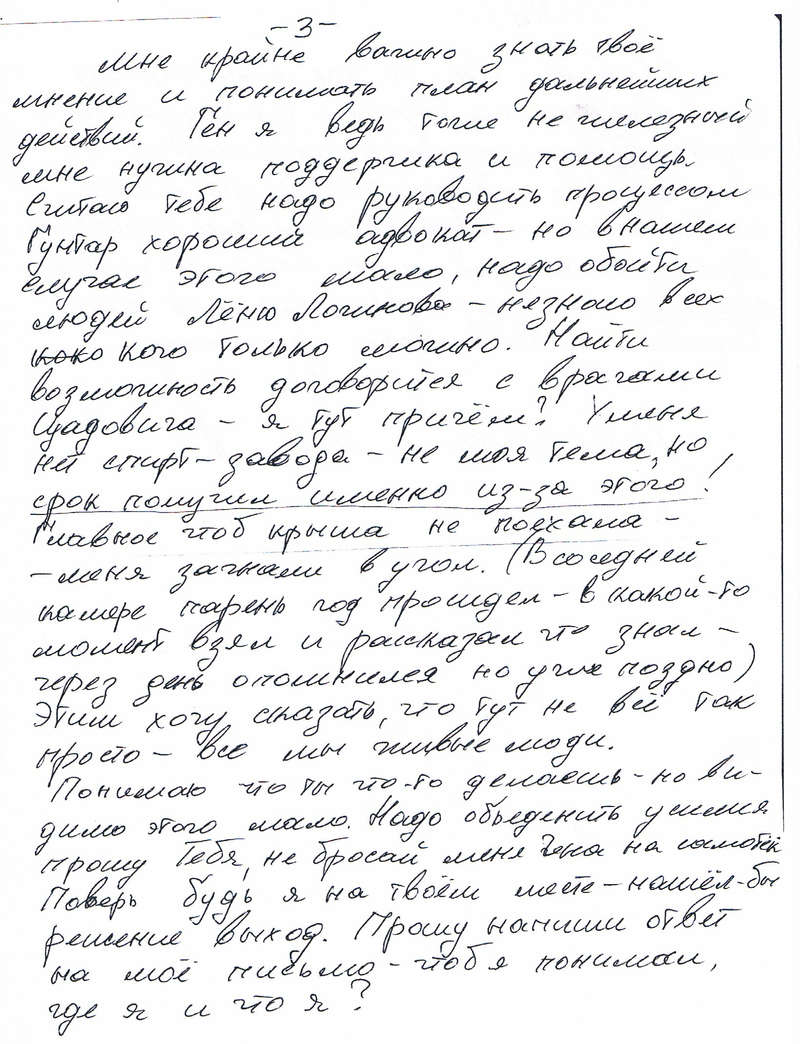 -3-
Мне крайне важно знать твоё
мнение и понимать план дальнейших
действий. Ген я ведь тоже не железный
мне нужна поддержка и помощь.
Считаю тебе надо руководить процессом
Гунтар хороший адвокат - но в нашем
случае этого мало, надо обойти
людей Лёню Логинова - незнаю всех
коко кого только можно. Найти
возможность договорится с врагами
Щадовича - я тут причём? У меня
нет спирт-завода - не моя тема, но
срок получил именно из-за этого!
Главное чтоб крыша не поехала -
- меня загнали в угол. (В соседней
камере парень год просидел - в какой-то
момент взял и рассказал что знал -
через день опомнился но уже поздно)
Этим хочу сказать, что тут не всё так
просто - все мы живые люди.
Понимаю что ты что-то делаешь - но ви-
димо этого мало. Надо объеденить усилия
прошу Тебя, не бросай меня Гена на самотёк
Поверь будь я на твоём месте - нашёл-бы
решение выход. Прошу напиши ответ
на моё письмо - чтоб я понимал,
где я и что я?